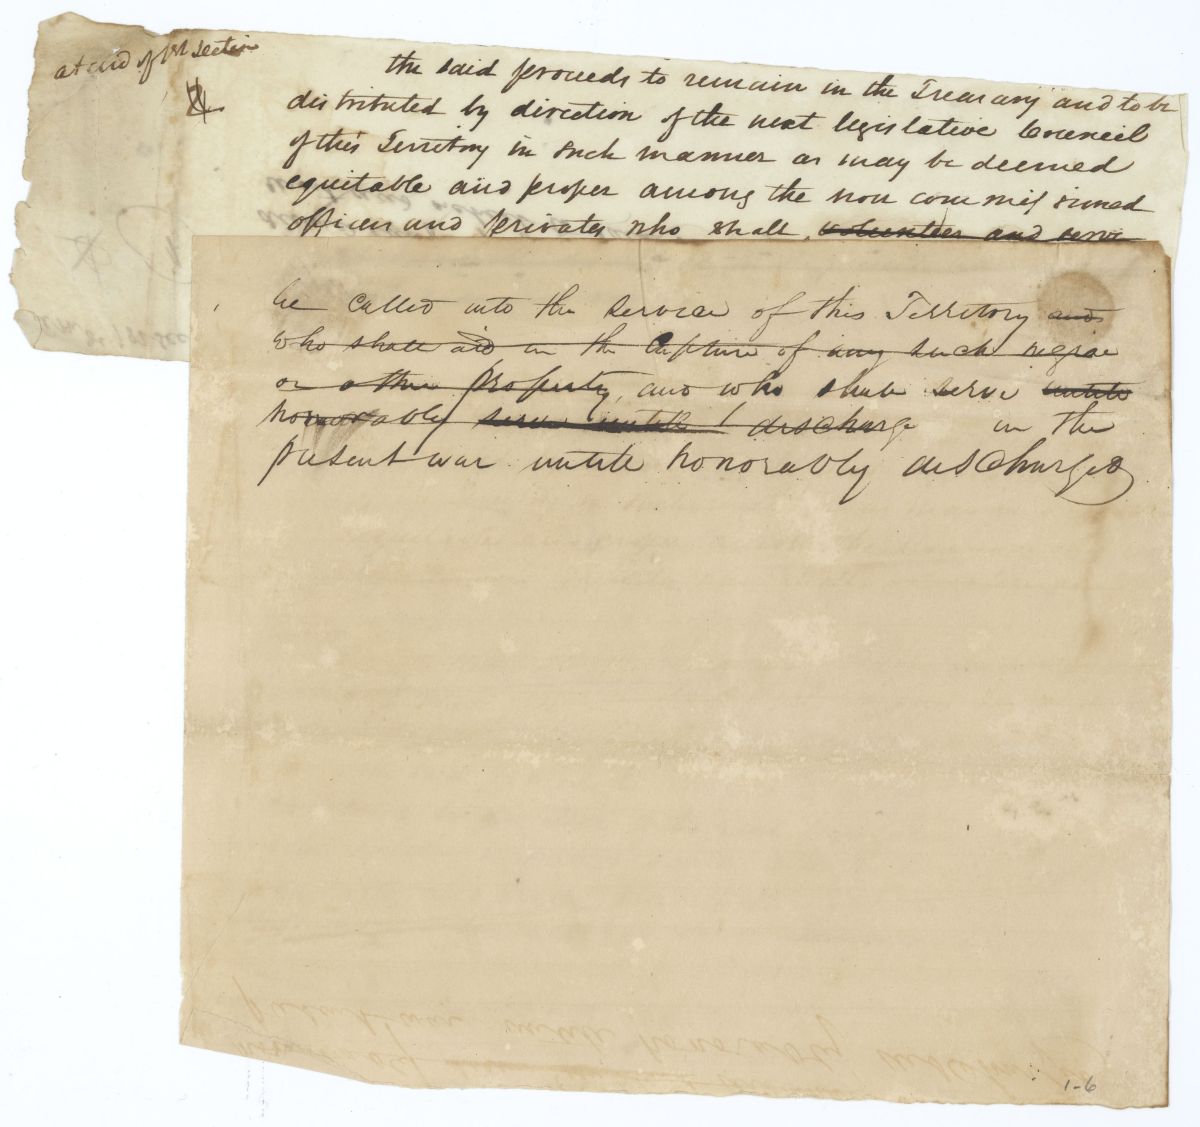 at end of 1st section
the said proceeds to remain in the Treasury and to be
distributed by direction of the next legislative Council
of this Territory in such manner as may be deemed
equitable and proper among the non commissioned
officers and privates who shall volunteer and serve
be called into the service of this Territory and
who shall aid in the Capture of any such negroe
or other property, and who shall serve untill
honorably serve untill discharge in the
present war untill honorably discharged
1-6